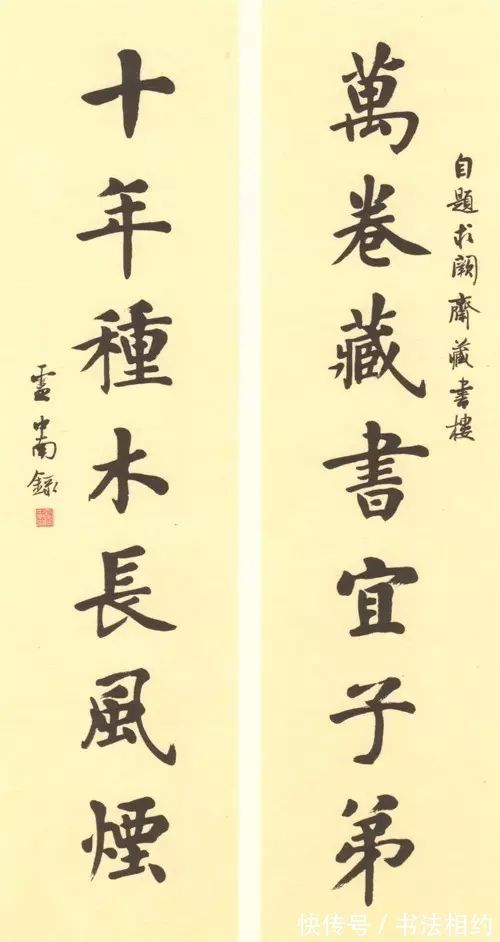 自題求闕齋藏書樓
萬卷藏書宜子弟
十年種木長風煙
盧中南錄
快传号/书法相约